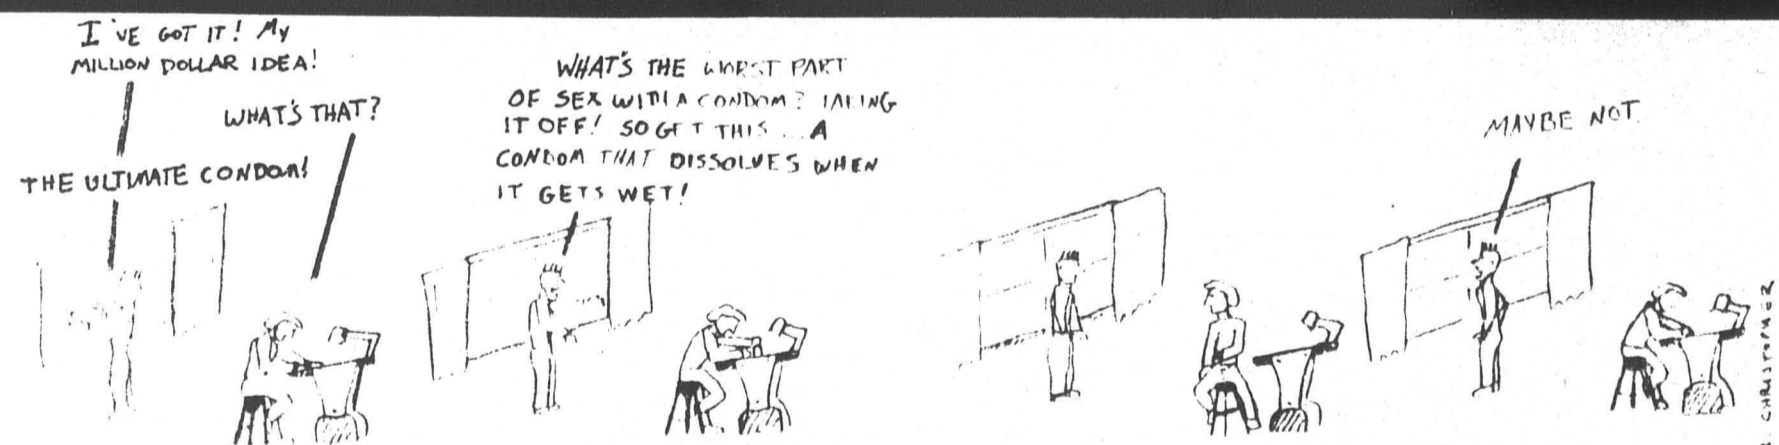 I'VE GOT IT! MY
MILLION DOLLAR IDEA!
WHAT'S THAT?
THE ULTIMATE CONDOM!
WHAT'S THE WORST PART
OF SEX WITH A CONDOM? TAKING
IT OFF! SO GET THIS... A
CONDOM THAT DISSOLVES WHEN
IT GETS WET!
MAYBE NOT.
CHRISTOPHER